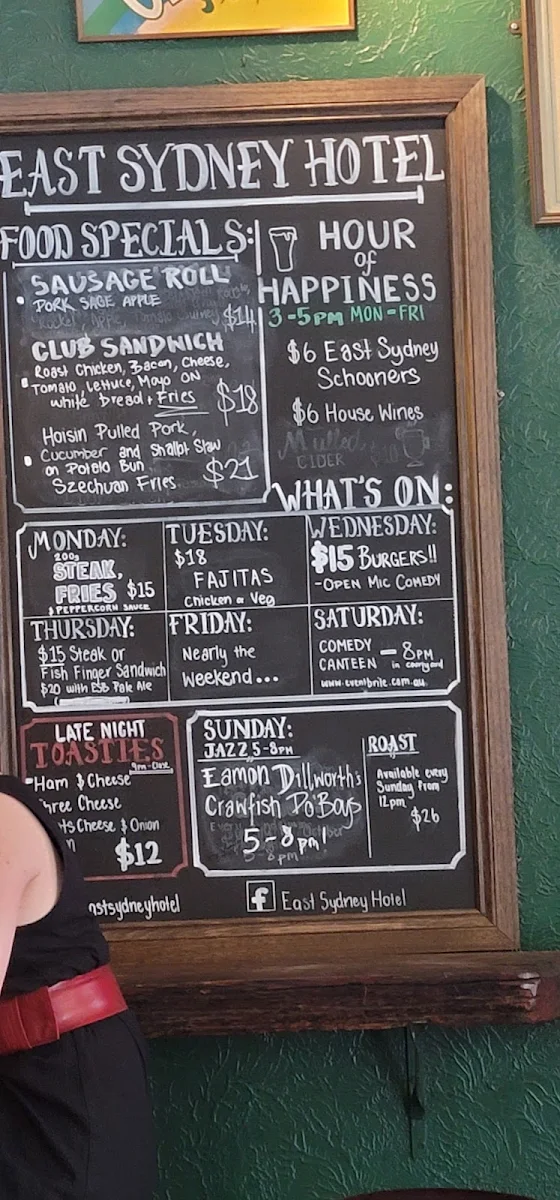 EAST SYDNEY HOTEL
FOOD SPECIALS:
SAUSAGE ROLL
PORK, SAGE, APPLE
$14
CLUB SANDWICH
Roast Chicken, Bacon, Cheese,
Tomato, Lettuce, Mayo ON
White bread + Fries
$18
Hoisin Pulled Pork,
Cucumber and Shallot Slaw
on Potato Bun
Szechuan Fries
$21
HOUR
of
HAPPINESS
3-5PM MON-FRI
$6 East Sydney
Schooners
$6 House Wines
Mulled
CIDER
WHAT'S ON:
MONDAY:
200g
STEAK,
FRIES $15
& PEPPERCORN SAUCE
TUESDAY:
$18
FAJITAS
Chicken or Veg
WEDNESDAY:
$15 BURGERS!!
-OPEN MIC COMEDY
THURSDAY:
$15 Steak or
Fish Finger Sandwich
$20 with ESB Pale Ale
FRIDAY:
Nearly the
Weekend...
SATURDAY:
COMEDY
CANTEEN - 8PM
in courtyard
www.eventbrite.com.au
LATE NIGHT
TOASTIES
9pm-Close
Ham & Cheese
Three Cheese
Cheese & Onion
$12
SUNDAY:
JAZZ 5-8PM
Eamon Dillworth's
Crawfish Po'Boys
5-8pm!
ROAST
Available every
Sunday from
12pm
$26
astsydneyhotel
f East Sydney Hotel